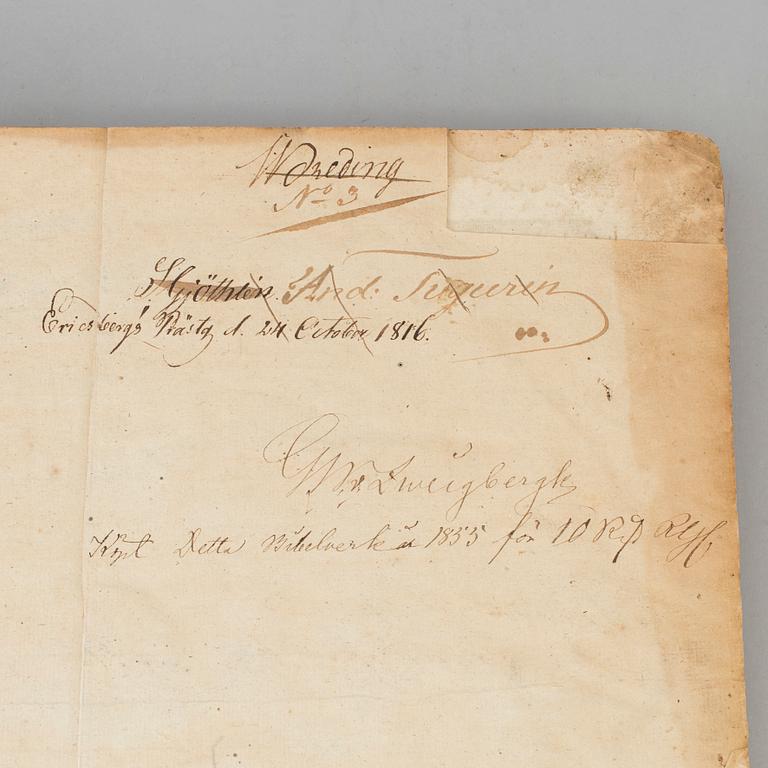 Wreding
No 3
And: Tugurin
Ericsbergs Prästg d. 24 October 1816.
v. Zweigbergk
Köpt Detta Bibelverk år 1855 för 10 Rd Rgs